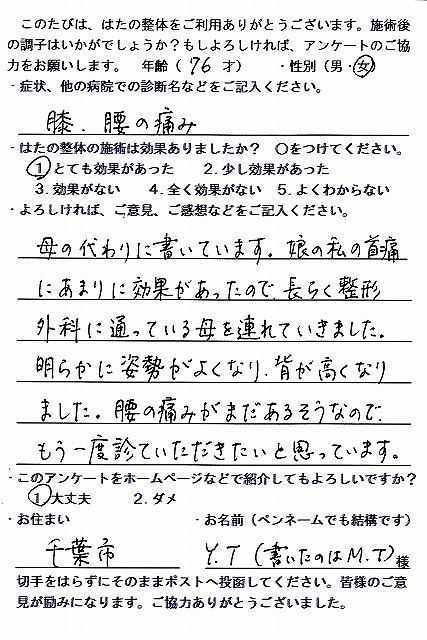 このたびは、はたの整体をご利用ありがとうございます。施術後
の調子はいかがでしょうか？もしよろしければ、アンケートのご協
力をお願いします。 年齢（ 76 才） ・性別（男・女）
・症状、他の病院での診断名などをご記入ください。
膝、腰の痛み
・はたの整体の施術は効果ありましたか？ ○をつけてください。
1 とても効果があった 2.少し効果があった
3.効果がない 4.全く効果がない 5.よくわからない
・よろしければ、ご意見、ご感想などをご記入ください。
母の代わりに書いています。娘の私の首痛
にあまりに効果があったので、長らく整形
外科に通っている母を連れていきました。
明らかに姿勢がよくなり、背が高くなり
ました。腰の痛みがまだあるそうなので、
もう一度診ていただきたいと思っています。
・このアンケートをホームページなどで紹介してもよろしいですか？
1 大丈夫 2.ダメ
・お住まい ・お名前（ペンネームでも結構です）
千葉市 Y.T（書いたのはM.T）様
切手をはらずにそのままポストへ投函してください。皆様のご意
見が励みになります。ご協力ありがとうございました。